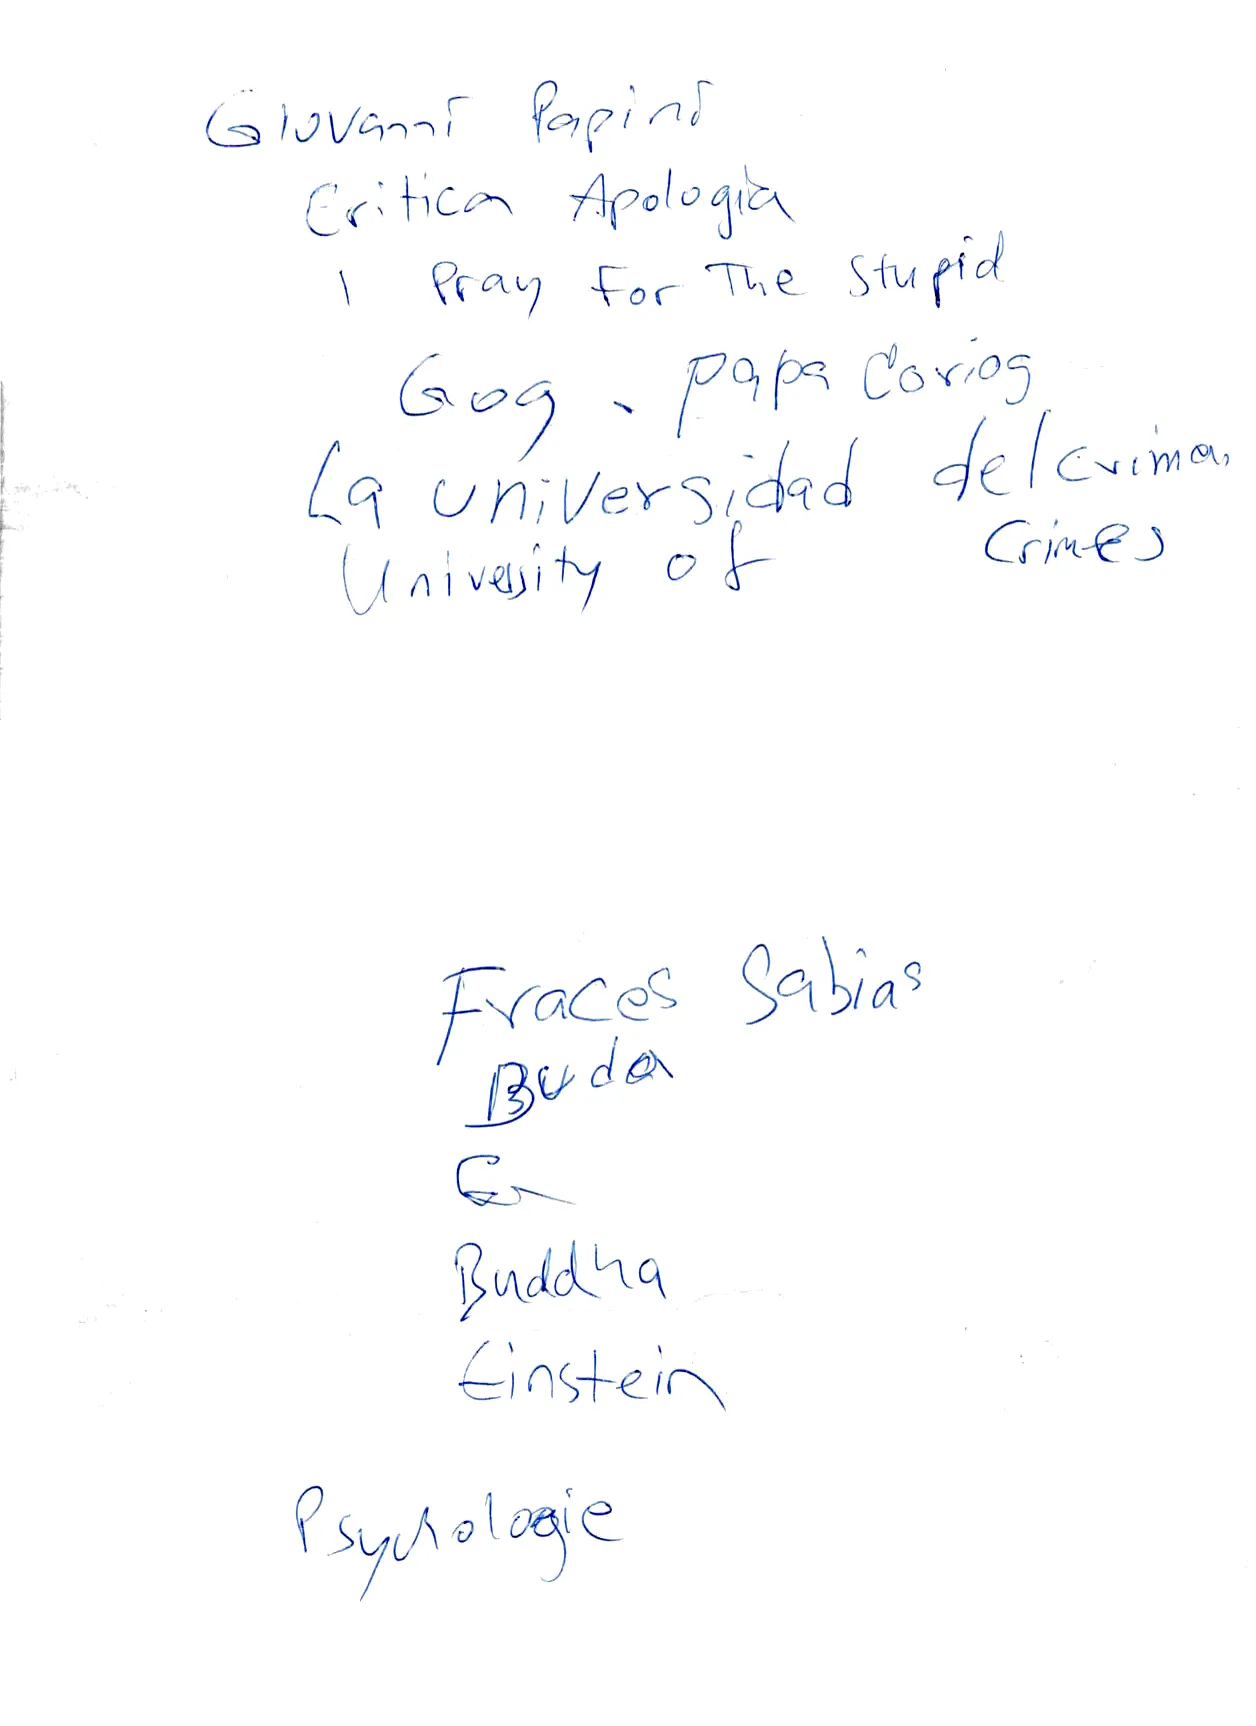 Giovanni Papini
Critica Apologia
I Pray For The Stupid
Gog, papa Corios
La universidad del crima,
University of Crimes
Fraces Sabias
Buda
En
Buddha
Einstein
Psychologie